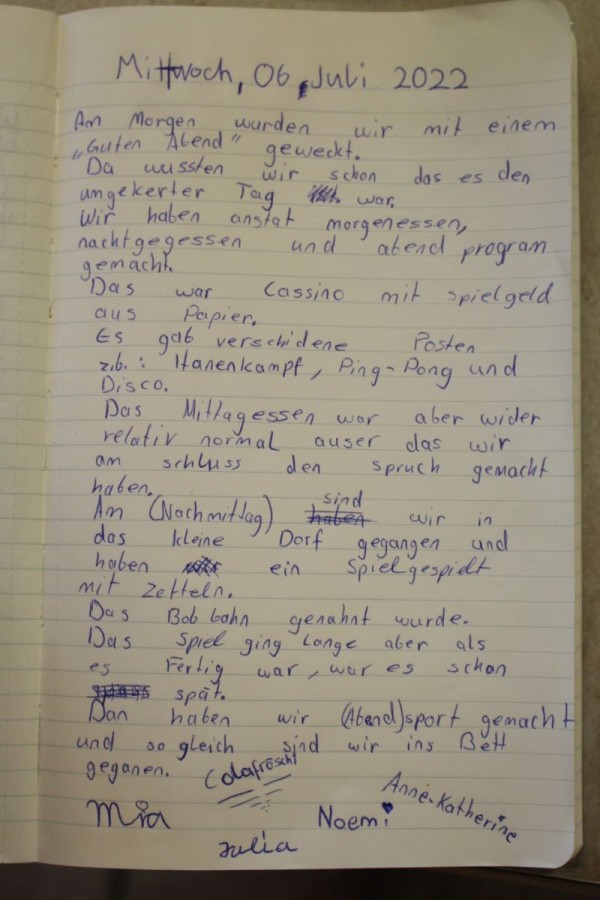 Mittwoch, 06. Juli 2022
Am Morgen wurden wir mit einem
„Guten Abend" geweckt.
Da wussten wir schon das es den
umgekerter Tag war.
Wir haben anstat morgenessen,
nachtgegessen und abend program
gemacht.
Das war Cassino mit spielgeld
aus Papier.
Es gab verschidene Posten
z.b.: Hanenkampf, Ping-Pong und
Disco.
Das Mittagessen war aber wider
relativ normal auser das wir
am schluss den spruch gemacht
haben.
Am (Nachmittag) sind wir in
das kleine Dorf gegangen und
haben ein Spiel gespielt
mit Zetteln.
Das Bob bahn genahnt wurde.
Das Spiel ging lange aber als
es Fertig war, war es schon
spät.
Dan haben wir (Abend)sport gemacht
und so gleich sind wir ins Bett
geganen.
Colafröscht
Anne-Katherine
Mia
Noemi
Julia